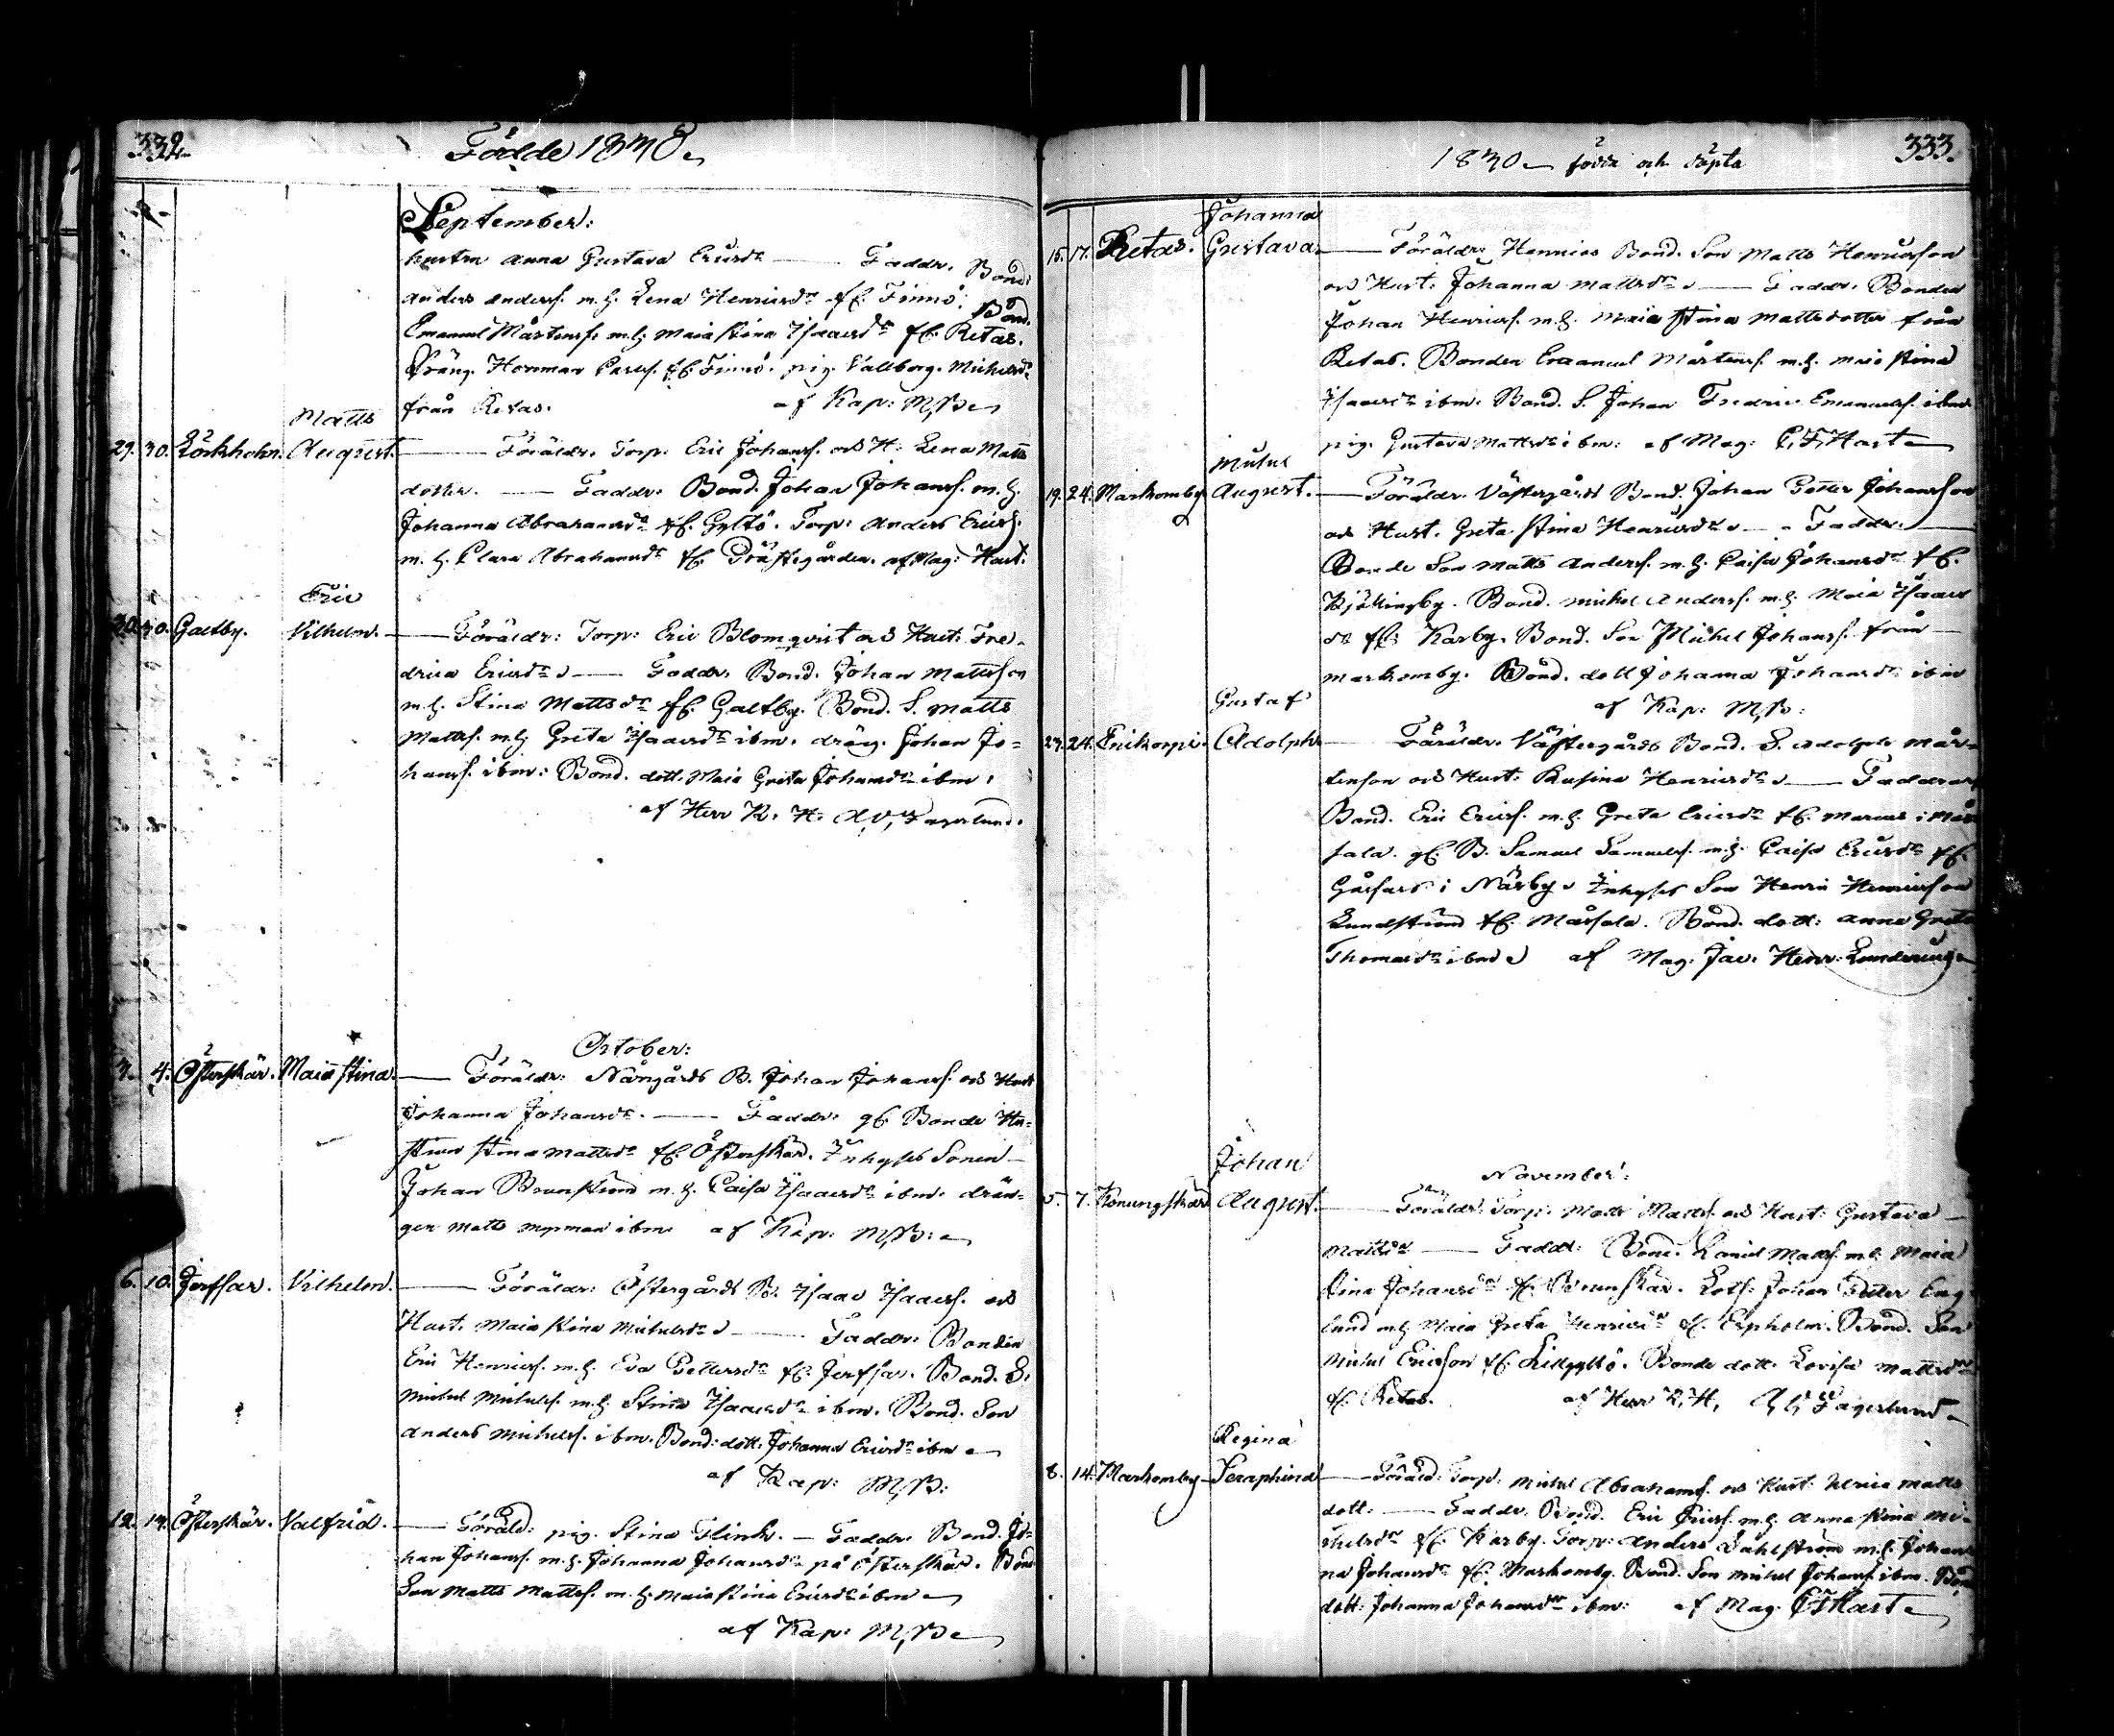 332.
Födde 1830.
September:
hustru Anna Gustava Ericsdr — Faddr. Bond.
Anders Anderss. m.h. Lena Henricsdr fr. Finnö. Bond.
Emanuel Mårtenss. m.h. Maia Stina Isaacsdr fr. Retais.
Dräng. Herrman Carlss. fr. Finnö. pig. Vallborg. Michelsdr
från Retais. af Kap: M,B.
Matts
29. 30. Lörkholm. August. — Föräldr. Torp. Eric Johanss. och H: Lena Matts
dotter. — Faddr: Bond. Johan Johanss. m.h.
Johanna Abrahamsdr fr. Gyltö. Torp: Anders Ericss.
m.h. Clara Abrahamsdr fr. Prästgården. af Mag: Hast.
Eric
30. 30. Galtby. Vilhelm. — Föräldr: Torp: Eric Blomqvist och Hust: Fre-
drica Ericsdr — Faddr. Bond. Johan Mattsson
m.h. Stina Mattsdr fr. Galtby. Bond. S. Matts
Mattss. m.h. Greta Isaacsdr ibm. dräng. Johan Jo-
hanss. ibm: Bond. dott. Maia Greta Johansdr ibm:
af Herr K. H. A,V, Fagerlund.
October:
3. 4. Österskär. Maia Stina. — Föräldr: Norrgårds B. Johan Johanss. och Hust
Johanna Johansdr. — Faddr: gf. Bonde Hu-
strun Stina Mattsdr fr. Österskär. Inhyses Sonen
Johan Brunström m.h. Caisa Isaacsdr ibm. drän-
gen Matts Nyman ibm. af Kap: M,B:
6. 10. Jerfsar. Vilhelm. — Föräldr: Östergårds B. Isaac Isaacss. och
Hust. Maia Stina Michelsdr — Faddr: Bonden
Eric Henricss. m.h. Eva Pettersdr fr. Jerfsar. Bond. S.
Michel Michelss. m.h. Stina Isaacsdr ibm. Bond. Son
Anders Michelss. ibm. Bond: dott: Johanna Ericsdr ibm
af Kap: M,B:
12. 14. Österskär. Valfrid. — Föräld: pig. Stina Flink. — Faddr. Bond. Jo-
han Johanss. m.h. Johanna Johansdr på Österskär. Bond
Son Matts Mattss. m.h. Maia Stina Ericsdr ibm
af Kap: M,B
333.
1830 — födda och döpta
Johanna
15. 17. Retais. Gustava. — Föräldr: Hemmies Bond. Son Matts Henricsson
och Hust. Johanna Mattsdr — Faddr. Bonden
Johan Henricss. m.h. Maia Stina Mattsdotter från
Retais. Bonden Emanuel Mårtenss. m.h. Maia Stina
Isaacsdr ibm. Bond. S. Johan Fredric Emanuelss. ibm
pig. Gustava Mattsdr ibm: af Mag: C,F,Hast
Michel
19. 24. Markomby August. — Föräldr. Västergårds Bond. Johan Petter Johansson
och Hust. Greta Stina Henricsdr — Faddr. —
Bonde Son Matts Anderss. m.h. Caisa Johansdr fr.
Kjöttingby. Bond. Michel Anderss. m.h. Maia Isaacs
dr fr. Karby. Bond. Son Michel Johanss. från
Markomby. Bond. dott Johanna Johansdr ibm
af Kap: M,B:
Gustaf
23. 24. Adolph. — Föräldr. Västergårds Bond. S. Adolph Mår-
tenson och Hust. Rusina Henricsdr — Faddrar
Bond. Eric Ericss. m.h. Greta Ericsdr fr. i Mår
sala. gf. B. Samuel Samuelss. m.h. Caisa Ericsdr fr.
i Nårby. Inhyses Son Henric Henricsson
Lundström fr. Mårsala. Bond. dott: Anna Greta
Thomasdr ibm af Mag: Jac. Henr.
November:
Johan
5. 7. Konungskär August. — Föräldr. Torp. Matts Mattss. och Hust. Gustava
Mattsdr — Faddr: Bond. Daniel Mattss. m.h. Maia
Stina Johansdr fr. Brunskär. Lots. Johan Petter Eng
lund m.h. Maia Greta Henricsdr fr. Espholm. Bond. Son
Michel Ericson fr. Lillgyltö. Bonde dott. Lovisa Mattsdr
fr. Retais. af Herr K,H, A,V, Fagerlund
Regina
8. 14. Markomby Seraphina — Föräld: Torp: Michel Abrahamss. och Hust. Ulrica Matts
dott: — Faddr. Bond. Eric Ericss. m.h. Anna Stina Mi-
chelsdr fr. Karby. Torp: Anders Dahlström m.h. Johan
na Johansdr fr. Markomby. Bond. Son Michel Johanss. ibm. Bond
dott: Johanna Johansdr ibm: af Mag. C,F,Hast